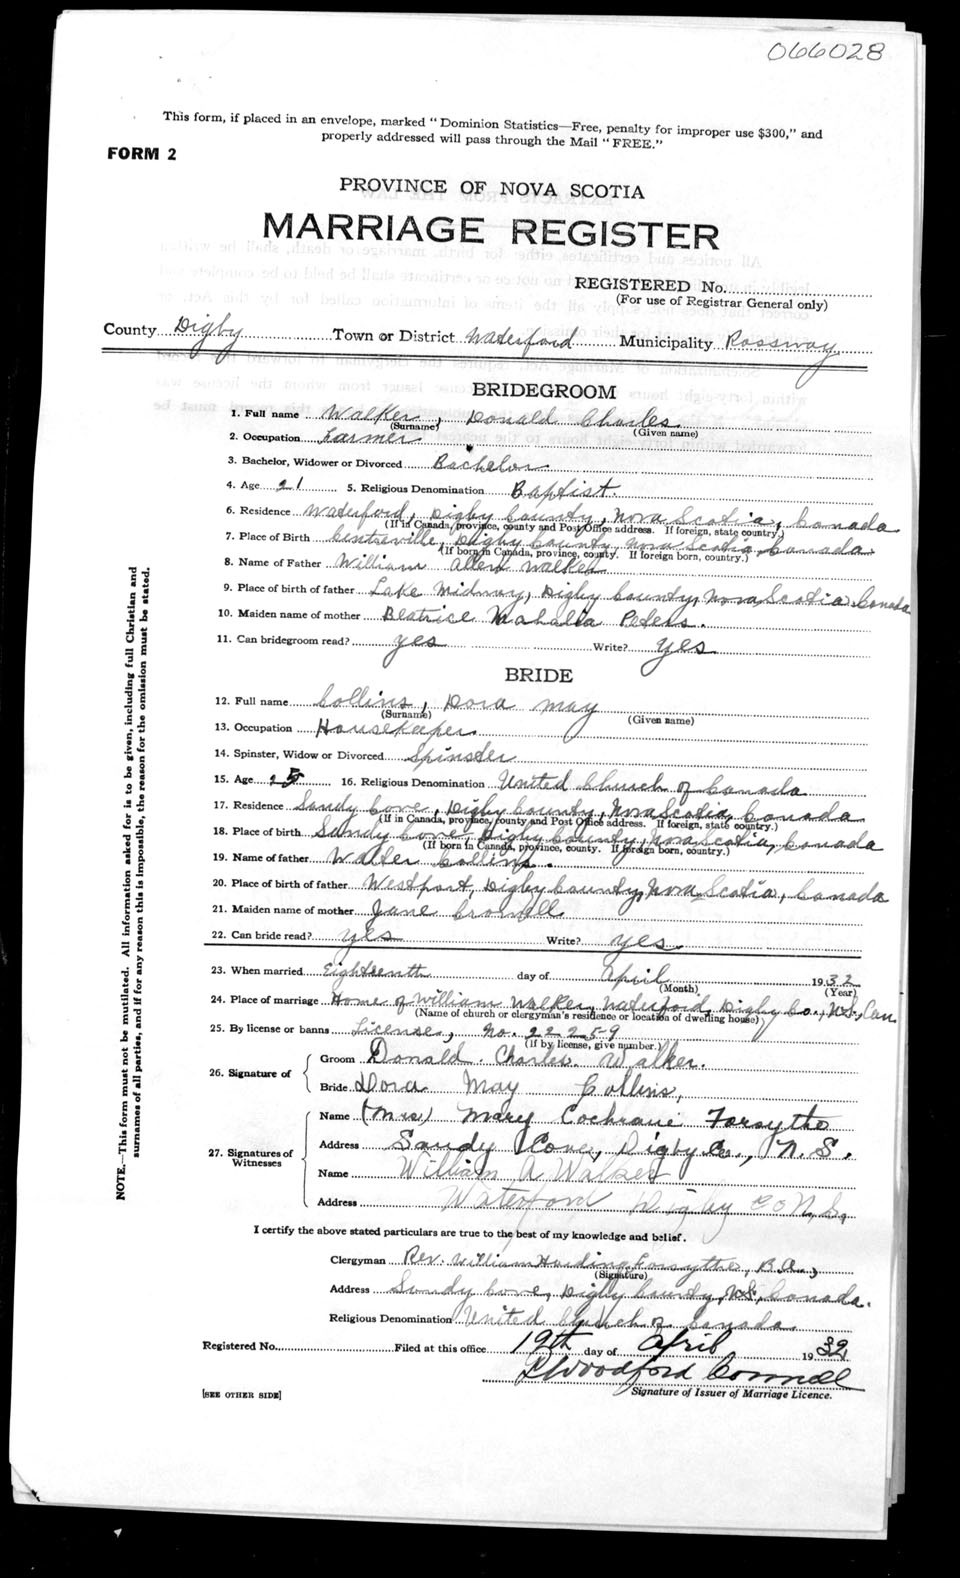 066028
This form, if placed in an envelope, marked "Dominion Statistics—Free, penalty for improper use $300," and
properly addressed will pass through the Mail "FREE."
FORM 2
PROVINCE OF NOVA SCOTIA
MARRIAGE REGISTER
REGISTERED No.
(For use of Registrar General only)
County Digby Town or District Waterford Municipality Rossway
BRIDEGROOM
1. Full name Walker, Donald Charles
(Surname) (Given name)
2. Occupation Farmer
3. Bachelor, Widower or Divorced Bachelor
4. Age 21 5. Religious Denomination Baptist.
6. Residence Waterford, Digby County, Nova Scotia, Canada
(If in Canada, province, county and Post Office address. If foreign, state country.)
7. Place of Birth Centreville, Digby County, Nova Scotia, Canada
(If born in Canada, province, county. If foreign born, country.)
8. Name of Father William Allen Walker
9. Place of birth of father Lake Midway, Digby County, Nova Scotia Canada
10. Maiden name of mother Beatrice Mahalia Peters.
11. Can bridegroom read? yes Write? yes
BRIDE
12. Full name Collins, Dora May
(Surname) (Given name)
13. Occupation Housekeeper
14. Spinster, Widow or Divorced Spinster
15. Age 25 16. Religious Denomination United Church of Canada
17. Residence Sandy Cove, Digby County, Nova Scotia, Canada
(If in Canada, province, county and Post Office address. If foreign, state country.)
18. Place of birth Sandy Cove, Digby County, Nova Scotia, Canada
(If born in Canada, province, county. If foreign born, country.)
19. Name of father Walter Collins.
20. Place of birth of father Westport, Digby County, Nova Scotia, Canada
21. Maiden name of mother Jane Crowell
22. Can bride read? yes Write? yes
23. When married Eighteenth day of April 1932
(Month) (Year)
24. Place of marriage Home of William Walker, Waterford, Digby Co., N.S., Can
(Name of church or clergyman's residence or location of dwelling house)
25. By license or banns License, No. 22259
(If by license, give number.)
26. Signature of
Groom Donald Charles Walker.
Bride Dora May Collins,
27. Signatures of Witnesses
Name (Mrs.) Mary Cochrane Forsythe
Address Sandy Cove, Digby Co., N.S.
Name William A Walker
Address Waterford Digby Co N.S.
I certify the above stated particulars are true to the best of my knowledge and belief.
Clergyman Rev. William Harding Forsythe, B.A.,
(Signature)
Address Sandy Cove, Digby County, N.S., Canada.
Religious Denomination United Church of Canada.
Registered No. Filed at this office 19th day of April 1932
Woodford Connell
Signature of Issuer of Marriage Licence.
[SEE OTHER SIDE]
NOTE.—This form must not be mutilated. All information asked for is to be given, including full Christian and
surnames of all parties, and if for any reason this is impossible, the reason for the omission must be stated.